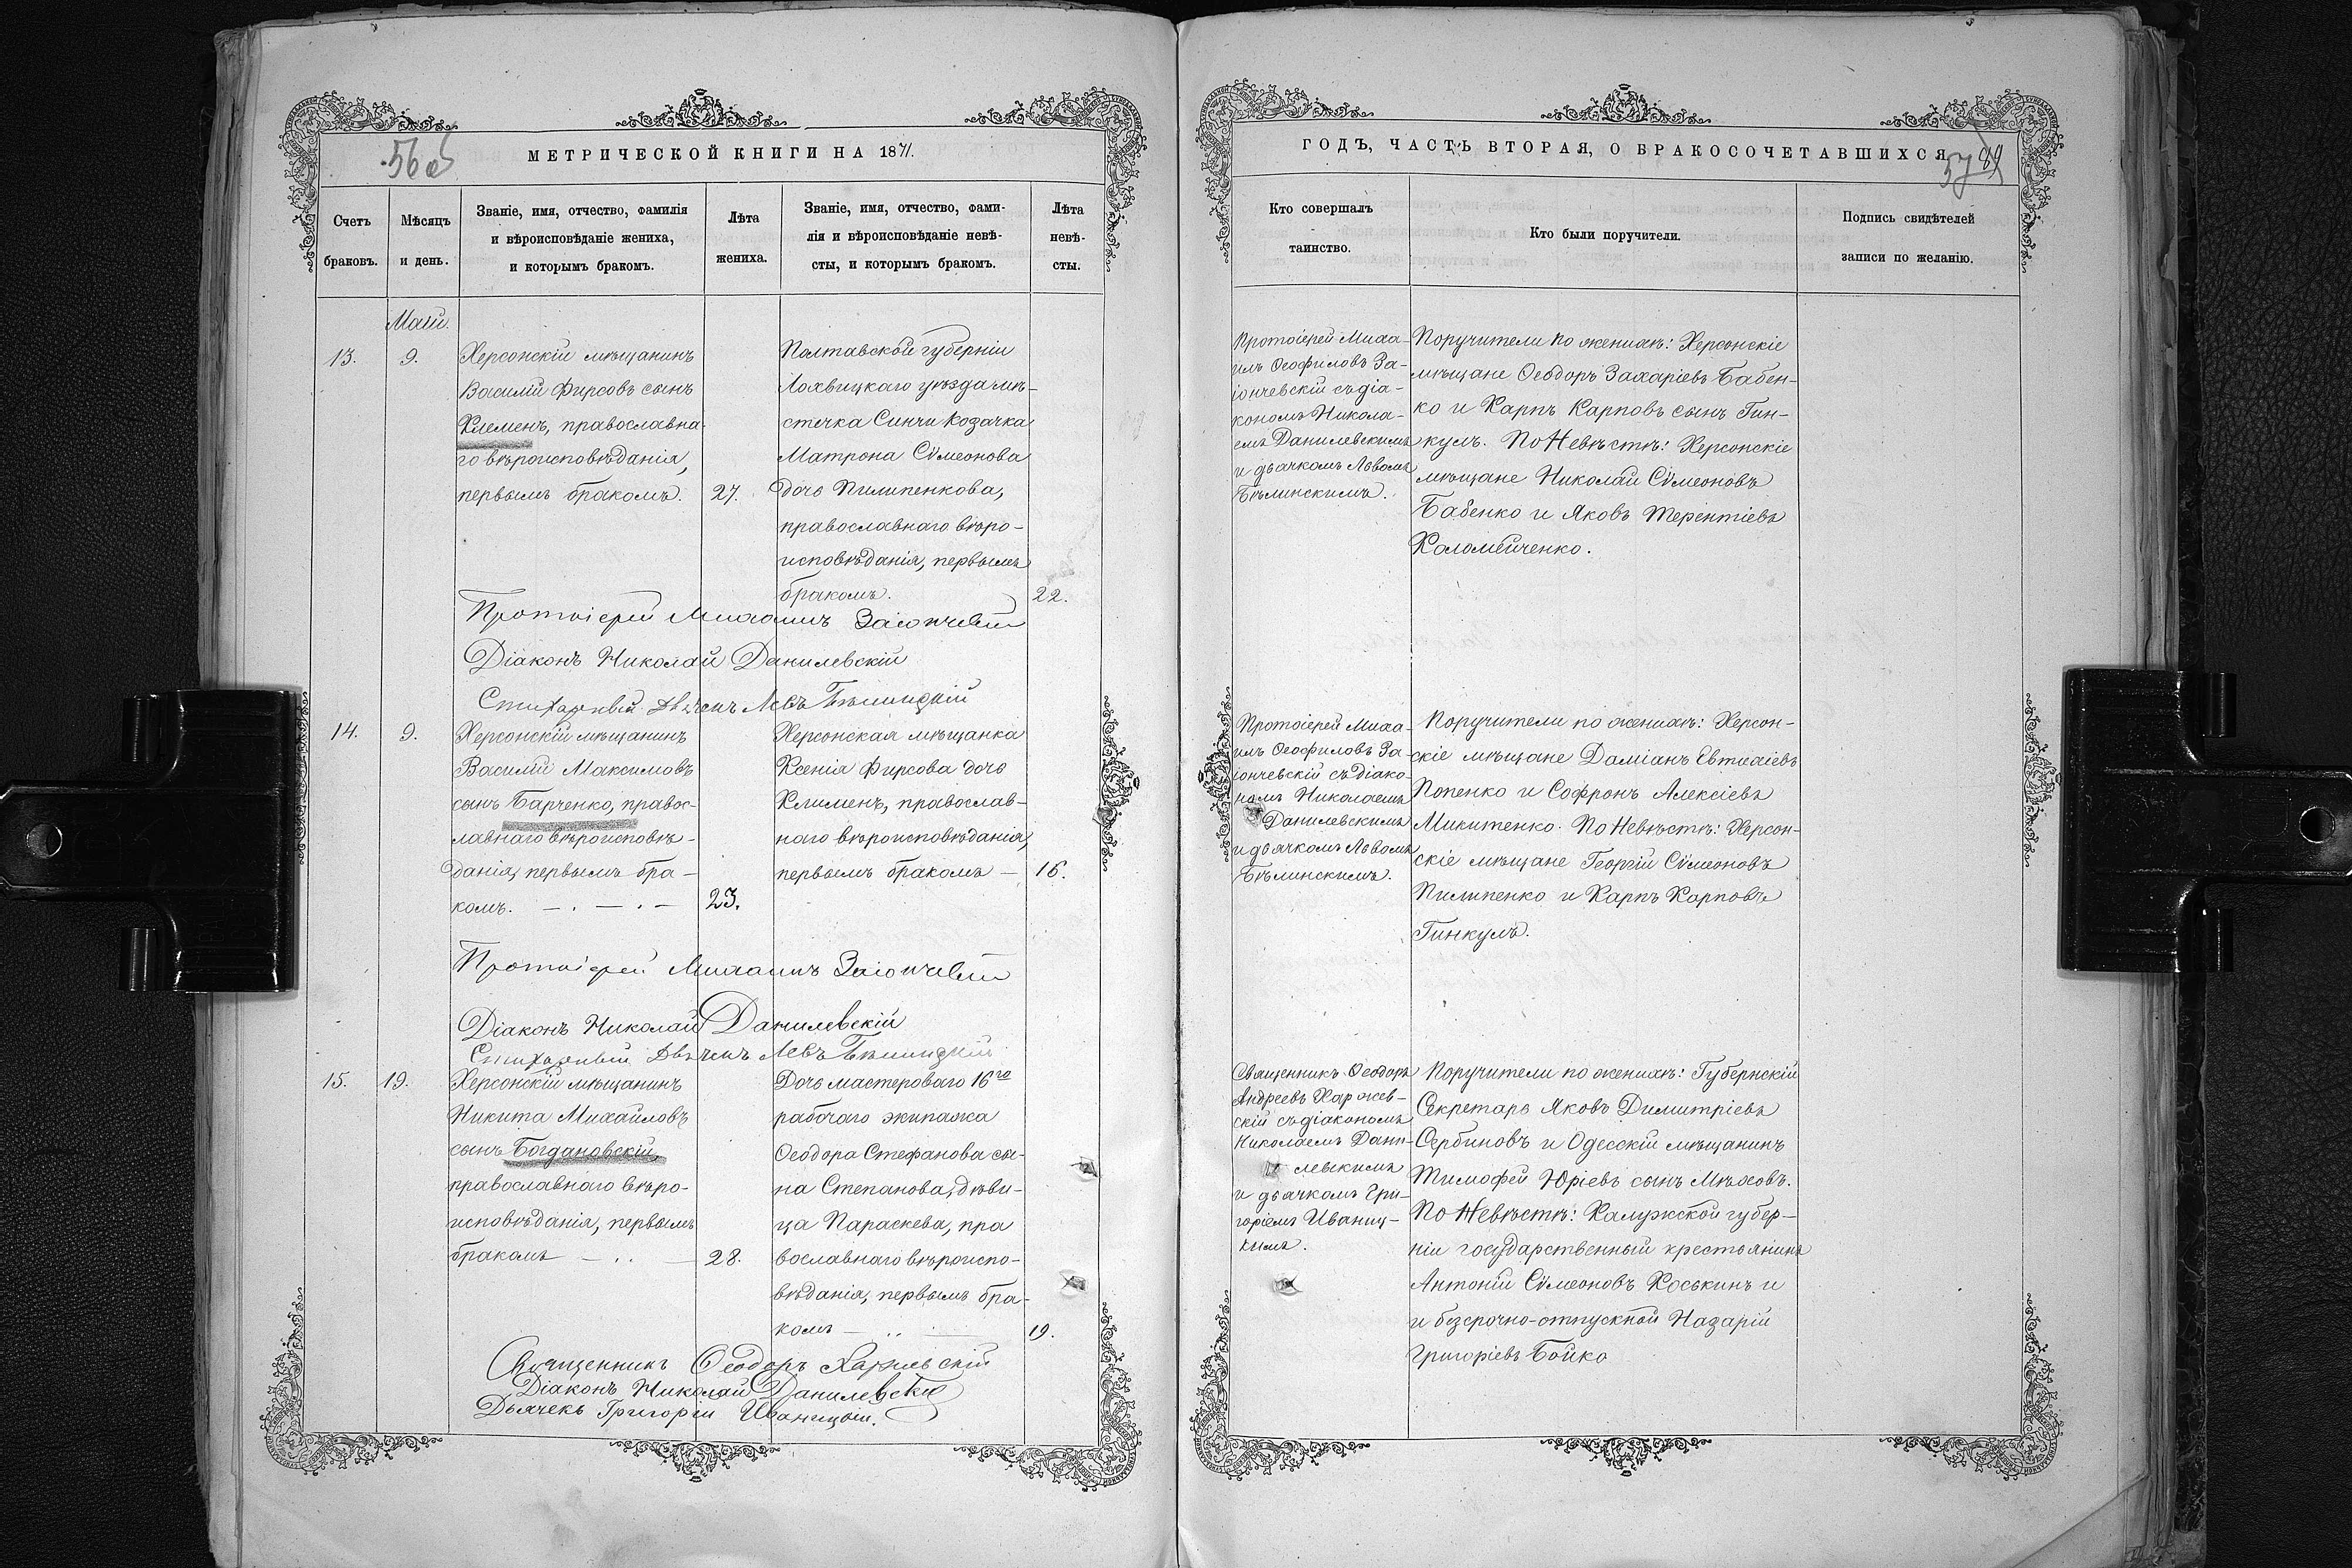 56об
МЕТРИЧЕСКОЙ КНИГИ НА 1871.
Счетъ
браковъ.
Мѣсяцъ
и день.
Званіе, имя, отчество, фамилія
и вѣроисповѣданіе жениха,
и которымъ бракомъ.
Лѣта
жениха.
Званіе, имя, отчество, фами-
лія и вѣроисповѣданіе невѣ-
сты, и которымъ бракомъ.
Лѣта
невѣ-
сты.
Май.
13.
9.
Херсонскій мѣщанинъ
Василій Фирсовъ сынъ
Клеменъ, православна-
го вѣроисповѣданія,
первымъ бракомъ.
27.
Полтавской губерніи
Лохвицкаго уѣзда мѣ-
стечка Синчи козачка
Матрона Сѵмеонова
дочь Пилипенкова,
православнаго вѣро-
исповѣданія, первымъ
бракомъ.
22.
Протоіерей Михаилъ Заіончевскій
Діаконъ Николай Данилевскій
Стихарный Дьячекъ Левъ Бѣлинскій
14.
9.
Херсонскій мѣщанинъ
Василій Максимовъ
сынъ Барченко, правос-
лавнаго вѣроисповѣ-
данія, первымъ бра-
комъ. — . — . —
23.
Херсонская мѣщанка
Ксенія Фирсова дочь
Клименъ, православ-
наго вѣроисповѣданія,
первымъ бракомъ —
16.
Протоіерей Михаилъ Заіончевскій
Діаконъ Николай Данилевскій
Стихарный Дьячекъ Левъ Бѣлинскій
15.
19.
Херсонскій мѣщанинъ
Никита Михайловъ
сынъ Богдановскій,
православнаго вѣро-
исповѣданія, первымъ
бракомъ — . . —
28.
Дочь мастероваго 16го
рабочаго экипажа
Ѳеодора Стефанова сы-
на Степанова, дѣви-
ца Параскева, пра
вославнаго вѣроиспо-
вѣданія, первымъ бра-
комъ — . . —
19.
Священникъ Ѳеодоръ Харжевскій
Діаконъ Николай Данилевскій
Дьячекъ Григорій Иваницкій.
ГОДЪ, ЧАСТЬ ВТОРАЯ, О БРАКОСОЧЕТАВШИХСЯ
57
Кто совершалъ
таинство.
Кто были поручители.
Подпись свидѣтелей
записи по желанію.
Протоіерей Миха-
илъ Ѳеофиловъ За-
іончевскій съ діа-
кономъ Никола-
емъ Данилевскимъ
и дьячкомъ Львомъ
Бѣлинскимъ.
Поручители по женихѣ: Херсонскіе
мѣщане Ѳеодоръ Захаріевъ Бабен-
ко и Карпъ Карповъ сынъ Гин-
кулъ. По Невѣстѣ: Херсонскіе
мѣщане Николай Сѵмеоновъ
Бабенко и Яковъ Терентіевъ
Коломейченко.
Протоіерей Миха-
илъ Ѳеофиловъ За-
іончевскій съ діако-
номъ Николаемъ
Данилевскимъ
и дьячкомъ Львомъ
Бѣлинскимъ.
Поручители по женихѣ: Херсон-
скіе мѣщане Даміанъ Евтихіевъ
Попенко и Софронъ Алексіевъ
Микитенко. По Невѣстѣ: Херсон-
скіе мѣщане Георгій Сѵмеоновъ
Пилипенко и Карпъ Карповъ
Гинкулъ.
Священникъ Ѳеодоръ
Андреевъ Харжев-
скій съ діакономъ
Николаемъ Дани-
левскимъ
и дьячкомъ Гри-
горіемъ Иваниц-
кимъ.
Поручители по женихѣ: Губернскій
Секретарь Яковъ Димитріевъ
Сербиновъ и Одесскій мѣщанинъ
Тимофей Юріевъ сынъ Мѣховъ.
По Невѣстѣ: Калужской губер-
ніи государственный крестьянинъ
Антоній Сѵмеоновъ Коськинъ и
и безсрочно-отпускной Назарій
Григоріевъ Бойко